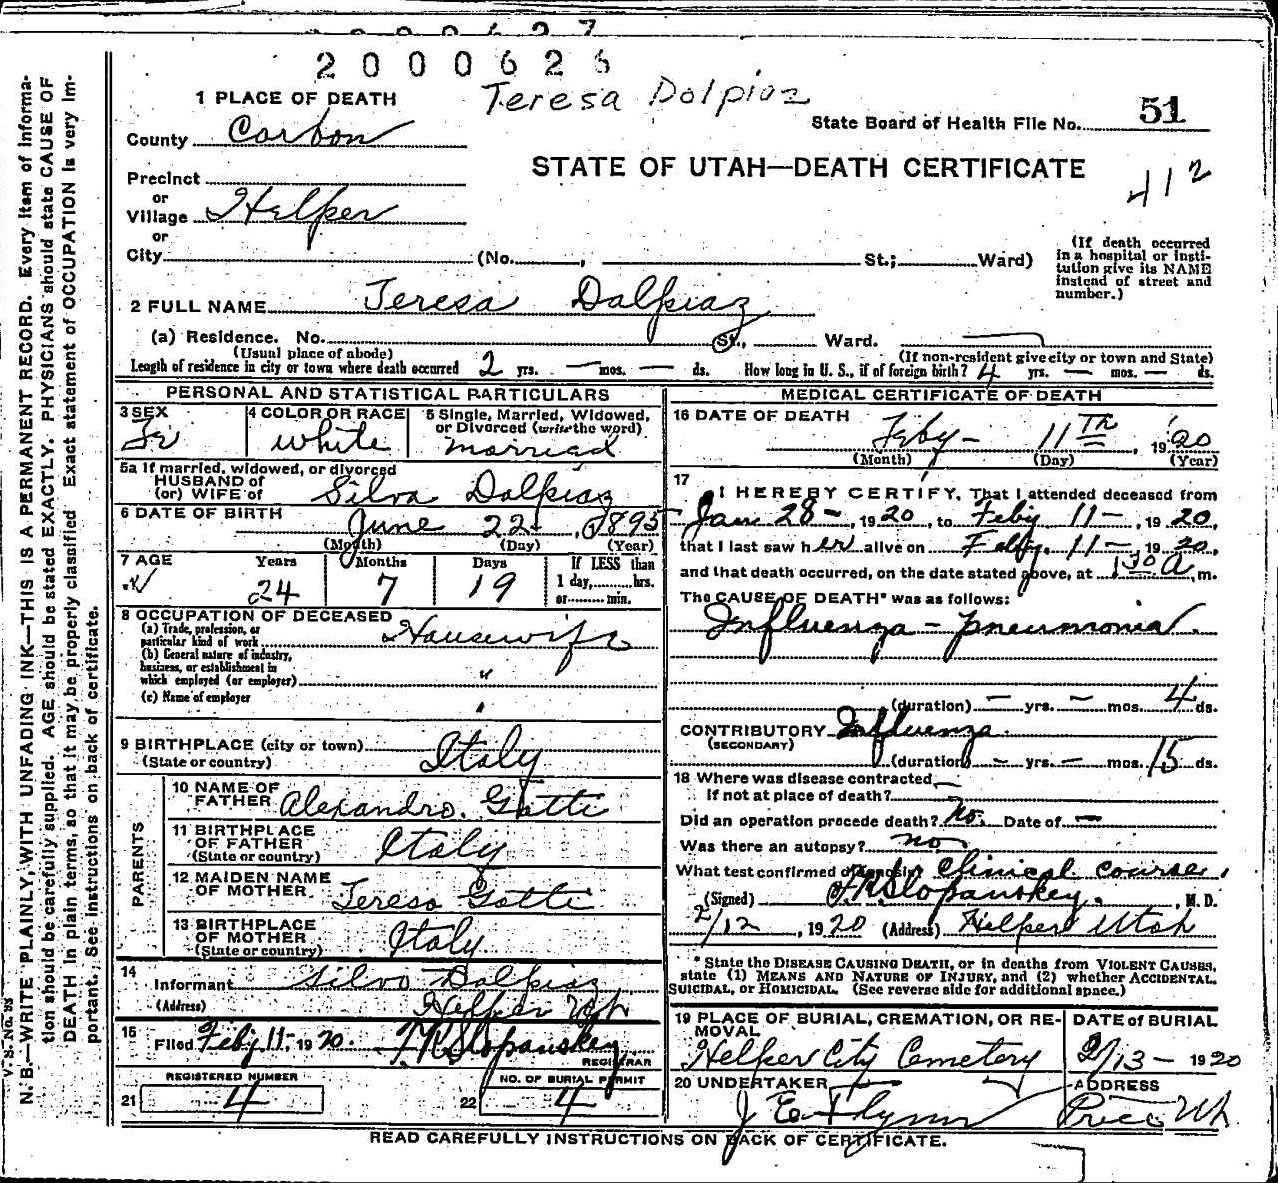 2000627
2000626
Teresa Dolpiaz
1 PLACE OF DEATH
County Carbon
State Board of Health File No. 51
STATE OF UTAH—DEATH CERTIFICATE
412
Precinct
or
Village Helper
or
City (No. , St.; Ward)
(If death occurred in a hospital or institution give its NAME instead of street and number.)
2 FULL NAME Teresa Dalpiaz
(a) Residence. No. St., Ward.
(Usual place of abode) (If non-resident give city or town and State)
Length of residence in city or town where death occurred 2 yrs. — mos. — ds. How long in U. S., if of foreign birth? 4 yrs. — mos. — ds.
PERSONAL AND STATISTICAL PARTICULARS
3 SEX Fe
4 COLOR OR RACE white
5 Single, Married, Widowed, or Divorced (write the word) married
5a If married, widowed, or divorced
HUSBAND of
(or) WIFE of Silva Dalpiaz
6 DATE OF BIRTH June 22, 1895
(Month) (Day) (Year)
7 AGE Years Months Days If LESS than
24 7 19 1 day, hrs.
or min.
8 OCCUPATION OF DECEASED
(a) Trade, profession, or particular kind of work Housewife
(b) General nature of industry, business, or establishment in which employed (or employer) "
(c) Name of employer
9 BIRTHPLACE (city or town) Italy
(State or country)
PARENTS
10 NAME OF FATHER Alexandro. Gotti
11 BIRTHPLACE OF FATHER Italy
(State or country)
12 MAIDEN NAME OF MOTHER Teresa Gotti
13 BIRTHPLACE OF MOTHER Italy
(State or country)
14 Informant Silvo Dalpiaz
(Address) Helper Ut
15 Filed Feby 11, 1920. F.R. Slopanskey
REGISTRAR
REGISTERED NUMBER
21 4
NO. OF BURIAL PERMIT
22 4
MEDICAL CERTIFICATE OF DEATH
16 DATE OF DEATH Feby - 11TH, 1920
(Month) (Day) (Year)
17
I HEREBY CERTIFY, That I attended deceased from
Jan 28 -, 1920, to Feby 11 -, 1920,
that I last saw her alive on Feby. 11 - 1920,
and that death occurred, on the date stated above, at 1 30 A m.
The CAUSE OF DEATH* was as follows:
Influenza - pneumonia.
(duration) — yrs. — mos. 4 ds.
CONTRIBUTORY Influenza.
(SECONDARY)
(duration) — yrs. — mos. 15 ds.
18 Where was disease contracted —
If not at place of death?
Did an operation precede death? No. Date of —
Was there an autopsy? no
What test confirmed diagnosis? Clinical course.
(Signed) F.R. Slopanskey, M. D.
2/12, 1920 (Address) Helper Utah
* State the DISEASE CAUSING DEATH, or in deaths from VIOLENT CAUSES,
state (1) MEANS AND NATURE OF INJURY, and (2) whether ACCIDENTAL,
SUICIDAL, or HOMICIDAL. (See reverse side for additional space.)
19 PLACE OF BURIAL, CREMATION, OR REMOVAL
Helper City Cemetery
DATE of BURIAL
2/13 - 1920
20 UNDERTAKER
J E Flynn
ADDRESS
Price Ut.
READ CAREFULLY INSTRUCTIONS ON BACK OF CERTIFICATE.
V. S. No. 95
N. B.—WRITE PLAINLY, WITH UNFADING INK—THIS IS A PERMANENT RECORD. Every item of information should be carefully supplied. AGE should be stated EXACTLY. PHYSICIANS should state CAUSE OF DEATH in plain terms, so that it may be properly classified. Exact statement of OCCUPATION is very important. See instructions on back of certificate.